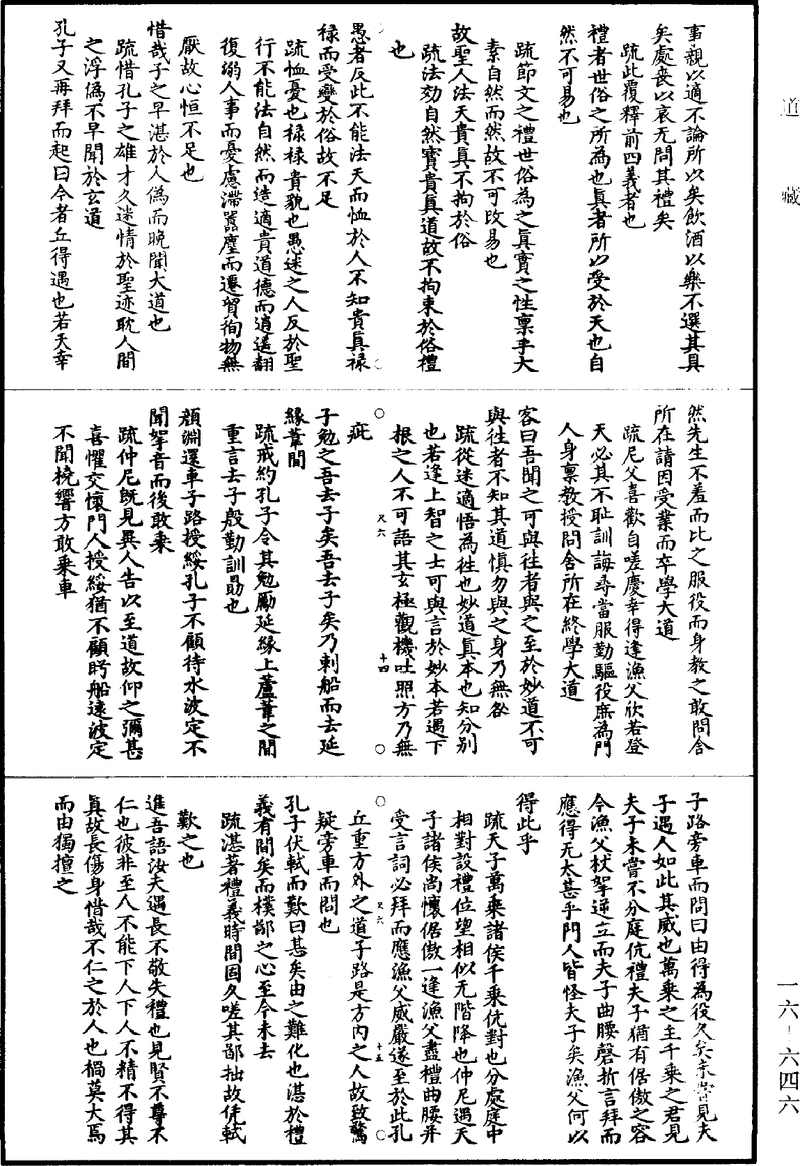 道藏
事親以適不論所以矣飲酒以樂不選其具
矣處喪以哀无問其禮矣
疏此覆釋前四義者也
禮者世俗之所為也真者所以受於天也自
然不可易也
疏節文之禮世俗為之真實之性禀乎大
素自然而然故不可改易也
故聖人法天貴真不拘於俗
疏法効自然寶貴真道故不拘束於俗禮
也
愚者反此不能法天而恤於人不知貴真祿
祿而受變於俗故不足
疏恤憂也祿祿貴貌也愚迷之人反於聖
行不能法自然而造適貴道德而逍遥翻
復溺人事而憂慮滯嚣塵而遷貿徇物無
厭故心恒不足也
惜哉子之早湛於人偽而晚聞大道也
疏惜孔子之雄才久迷情於聖迹耽人間
之浮偽不早聞於玄道
孔子又再拜而起曰今者丘得遇也若天幸
然先生不羞而比之服役而身教之敢問舍
所在請因受業而卒學大道
疏尼父喜歡自嗟慶幸得逢漁父欣若登
天必其不恥訓誨尋當服勤驅役庶為門
人身禀教授問舍所在終學大道
客曰吾聞之可與往者與之至於妙道不可
與往者不知其道慎勿與之身乃無咎
疏從迷適悟為往也妙道真本也知分別
也若逢上智之士可與言於妙本若遇下
根之人不可語其玄極觀機吐照方乃無
疵
子勉之吾去子矣吾去子矣乃刺船而去延
緣葦間
疏戒約孔子令其勉勵延緣上蘆葦之間
重言去子殷勤訓勗也
顔淵還車子路授綏孔子不顧待水波定不
聞拏音而後敢乘
疏仲尼旣見異人告以至道故仰之彌甚
喜懼交懷門人授綏猶不顧盻船遠波定
不聞橈響方敢乘車
尺六
十四
子路旁車而問曰由得為役久矣未嘗見夫
子遇人如此其威也萬乘之主千乘之君見
夫子未嘗不分庭伉禮夫子猶有倨傲之容
今漁父杖拏逆立而夫子曲腰磬折言拜而
應得无太甚乎門人皆怪夫子矣漁父何以
得此乎
疏天子萬乘諸侯千乘伉對也分處庭中
相對設禮位望相似无階降也仲尼遇天
子諸侯尚懷倨傲一逢漁父盡禮曲腰并
受言詞必拜而應漁父威嚴遂至於此孔
丘重方外之道子路是方内之人故致驚
疑旁車而問也
孔子伏軾而歎曰甚矣由之難化也湛於禮
義有間矣而樸鄙之心至今未去
疏湛著禮義時間固久嗟其鄙拙故凭軾
歎之也
進吾語汝夫遇長不敬失禮也見賢不尊不
仁也彼非至人不能下人下人不精不得其
真故長傷身惜哉不仁之於人也禍莫大焉
而由獨擅之
尺六
十五
一六－六四六